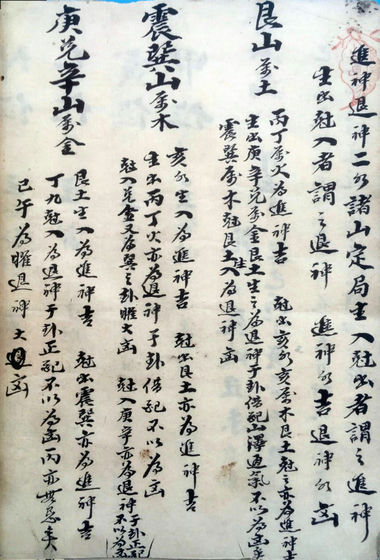 進神退神二水諸山定局生入尅出者謂之進神
生出尅入者謂之退神 進神水吉退神水凶
艮山屬土
丙丁屬火為進神吉 尅出亥水亥屬木艮土尅之亦為進神吉
生出庚辛兌屬金艮土生之為退神于卦偕配山澤通氣不以為凶
震巽屬木尅艮土生入為退神凶
震巽山屬木
亥水生入為進神吉 尅出艮土亦為進神吉
生出丙丁火亦為退神于卦偕配不以為凶
尅入兌金又為巽之卦曜大凶 尅入庚辛亦為退神于卦正配不以為凶
庚兌辛山屬金
艮土生入為進神吉 尅出震巽亦為進神吉
丁九尅入為退神于卦正配不以為凶丙亦無忌矣
巳午為曜退神大凶